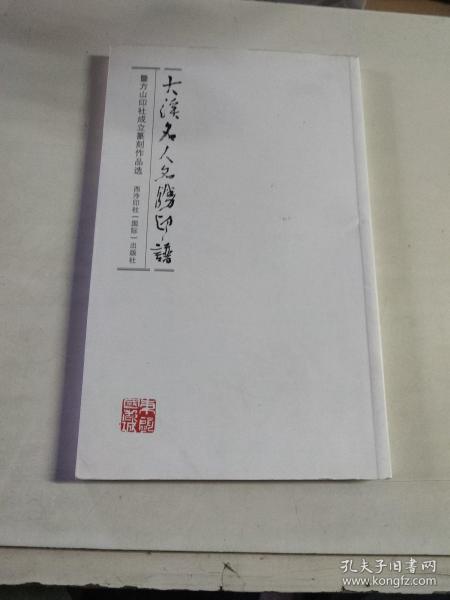 大溪名人名勝印譜
暨方山印社成立篆刻作品选
西泠印社（国际）出版社
孔夫子旧书网
www.kongfz.com